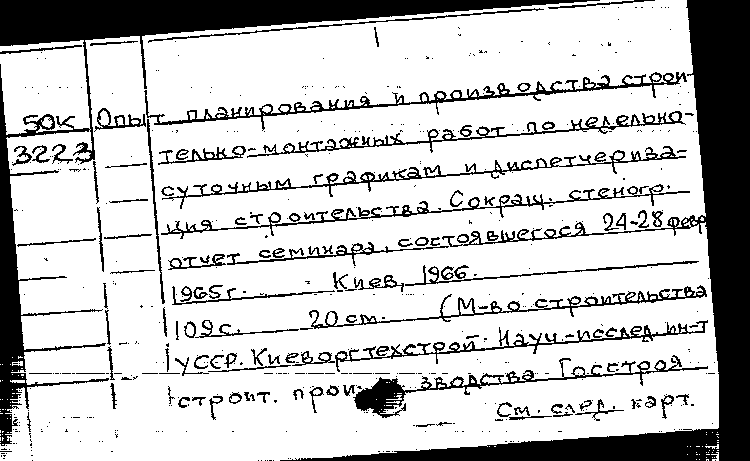 50К Опыт планирования и производства строи-
3223 тельно-монтажных работ по недельно-
суточным графикам и диспетчериза-
ция строительства. Сокращ. стеногр.
отчет семинара, состоявшегося 24-28 февр
1965г. Киев, 1966.
109с. 20 см. (М-во строительства
УССР. Киеворгтехстрой. Науч.-исслед. ин-т
строит. производства Госстроя
См. след. карт.